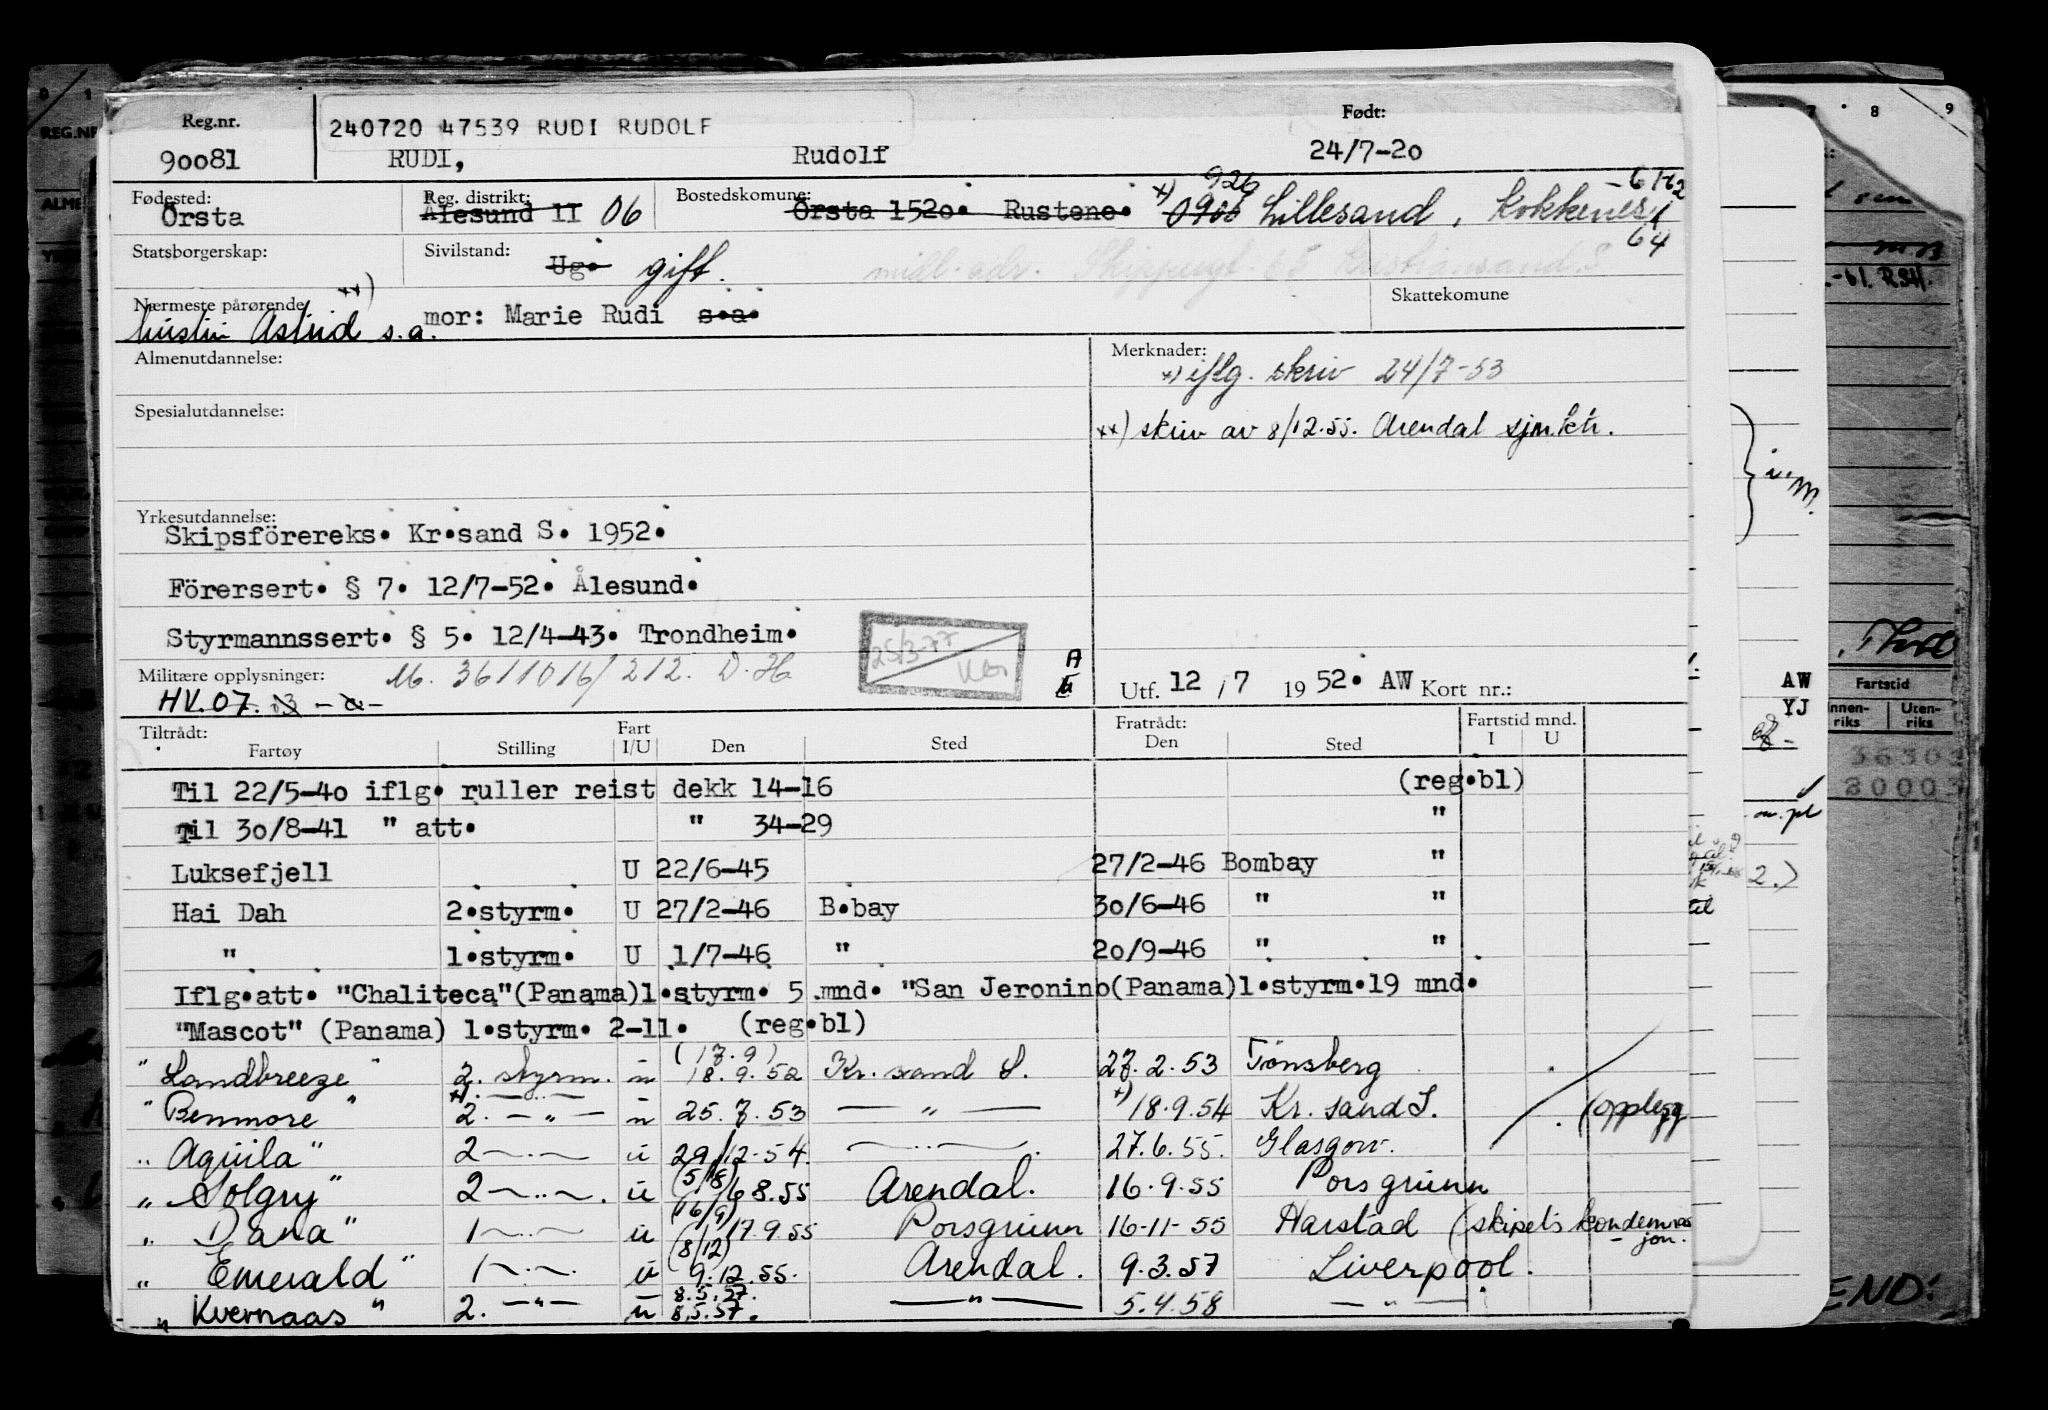 Reg.nr. 240720 47539 RUDI RUDOLF Født:
90081 RUDI, Rudolf 24/7-20
Fødested: Reg. distrikt: Bostedskomune: 926
Örsta Ålesund II 06 Örsta 1520. Rustene. x) 0906 Lillesand, Kokkenes
64
Statsborgerskap: Sivilstand: Ug. gift. midl. adr. Skippergt. 65 Kristiansand S
Nærmeste pårørende xx) Skattekomune
hustru Astrid s.a. mor: Marie Rudi s.a.
Almenutdannelse: Merknader:
x) iflg. skriv 24/7-53
Spesialutdannelse: xx) skriv av 8/12.55. Arendal sjm.ktr.
Yrkesutdannelse:
Skipsförereks. Kr.sand S. 1952.
Förersert. § 7. 12/7-52. Ålesund.
Styrmannssert. § 5. 12/4-43. Trondheim.
25/3-77
Militære opplysninger: M. 3611016/212. D.H. A
HV.07. Utf. 12/7 1952. AW Kort nr.:
Tiltrådt: Fart Fratrådt: Fartstid mnd.
Fartøy Stilling I/U Den Sted Den Sted I U
Til 22/5-40 iflg. ruller reist dekk 14-16 (reg.bl)
Til 30/8-41 " att. " 34-29 "
Luksefjell U 22/6-45 27/2-46 Bombay "
Hai Dah 2.styrm. U 27/2-46 B.bay 30/6-46 " "
" 1.styrm. U 1/7-46 " 20/9-46 " "
Iflg.att. "Chaliteca"(Panama)1.styrm. 5 mnd. "San Jeronino(Panama)1.styrm.19 mnd.
"Mascot" (Panama) 1.styrm. 2-11. (reg.bl)
(17.9)
"Landbreeze" 2. styrm. u 18.9.52 Kr. sand S. 27.2.53 Tönsberg
"Benmore" x) 2. -"- u 25.7.53 -"- x) 18.9.54 Kr. sand S. (opplegg
"Aquila" 2 -"- u 29/12-54. -"- 27.6.55. Glasgow.
(5/8)
"Solgry" 2 -"-. u 6/8.55 Arendal. 16.9.55 Porsgrunn
(16/9)
"Dana" 1 -"- u 17.9.55 Porsgrunn 16-11-55 Harstad (skipets kondemnasjon.
(8/12)
"Emerald" 1 -"- u 9.12.55. Arendal. 9.3.57 Liverpool.
8.5.57.
"Kvernaas" 2. -"- u 8.5.57. -"- 5.4.58 -"-
REG.NR
7 8 9
i.M.
AW
YJ
Fartstid
Innen-riks Uten-riks
2.)
END: